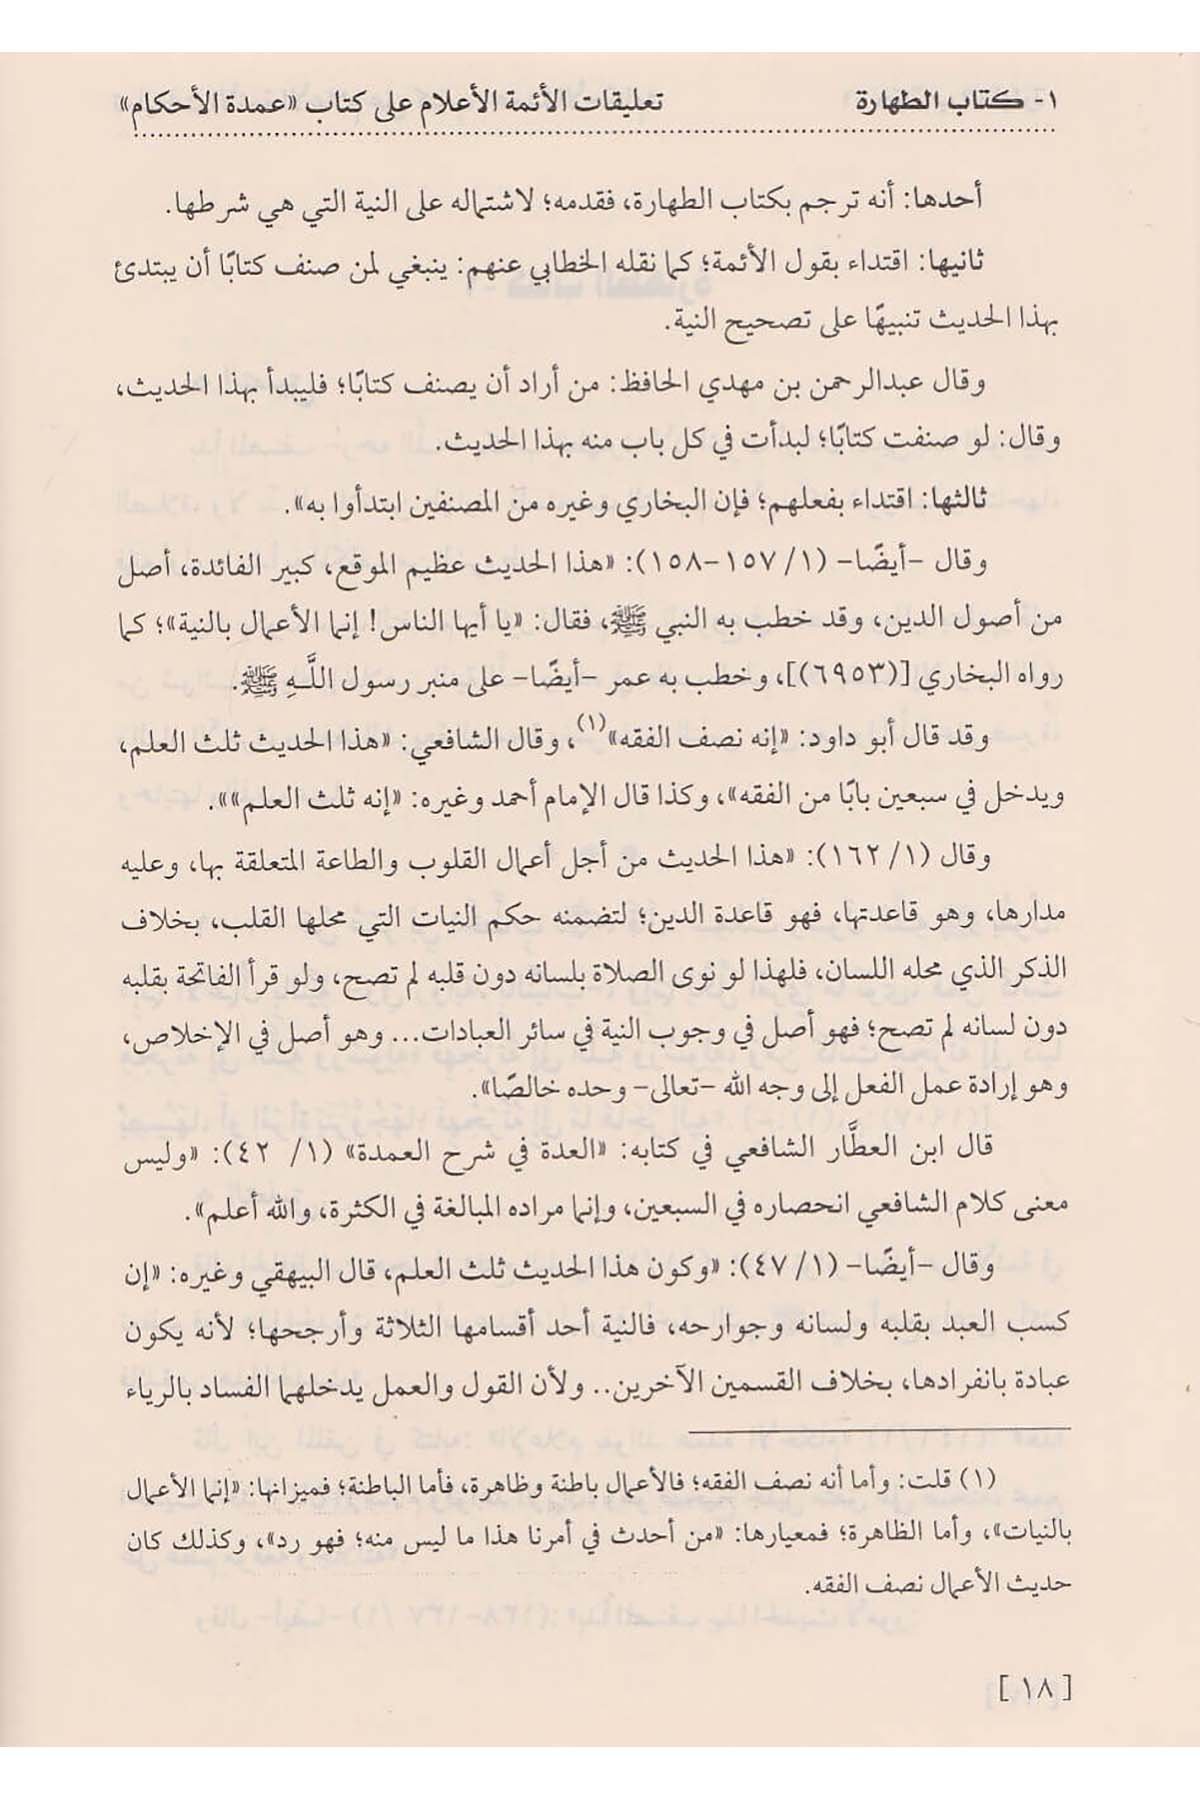 ١- كتاب الطهارة تعليقات الأئمة الأعلام على كتاب «عمدة الأحكام»
أحدها: أنه ترجم بكتاب الطهارة، فقدمه؛ لاشتماله على النية التي هي شرطها.
ثانيها: اقتداء بقول الأئمة؛ كما نقله الخطابي عنهم: ينبغي لمن صنف كتابًا أن يبتدئ
بهذا الحديث تنبيهًا على تصحيح النية.
وقال عبدالرحمن بن مهدي الحافظ: من أراد أن يصنف كتابًا؛ فليبدأ بهذا الحديث،
وقال: لو صنفت كتابًا؛ لبدأت في كل باب منه بهذا الحديث.
ثالثها: اقتداء بفعلهم؛ فإن البخاري وغيره من المصنفين ابتدأوا به».
وقال –أيضًا– (١/ ١٥٧–١٥٨): «هذا الحديث عظيم الموقع، كبير الفائدة، أصل
من أصول الدين، وقد خطب به النبي ﷺ، فقال: «يا أيها الناس! إنما الأعمال بالنية»؛ كما
رواه البخاري [(٦٩٥٣)]، وخطب به عمر –أيضًا– على منبر رسول اللَّـهِ ﷺ.
وقد قال أبو داود: «إنه نصف الفقه»(١)، وقال الشافعي: «هذا الحديث ثلث العلم،
ويدخل في سبعين بابًا من الفقه»، وكذا قال الإمام أحمد وغيره: «إنه ثلث العلم»».
وقال (١/ ١٦٢): «هذا الحديث من أجل أعمال القلوب والطاعة المتعلقة بها، وعليه
مدارها، وهو قاعدتها، فهو قاعدة الدين؛ لتضمنه حكم النيات التي محلها القلب، بخلاف
الذكر الذي محله اللسان، فلهذا لو نوى الصلاة بلسانه دون قلبه لم تصح، ولو قرأ الفاتحة بقلبه
دون لسانه لم تصح؛ فهو أصل في وجوب النية في سائر العبادات... وهو أصل في الإخلاص،
وهو إرادة عمل الفعل إلى وجه الله –تعالى– وحده خالصًا».
قال ابن العطَّار الشافعي في كتابه: «العدة في شرح العمدة» (١/ ٤٢): «وليس
معنى كلام الشافعي انحصاره في السبعين، وإنما مراده المبالغة في الكثرة، والله أعلم».
وقال –أيضًا– (١/ ٤٧): «وكون هذا الحديث ثلث العلم، قال البيهقي وغيره: «إن
كسب العبد بقلبه ولسانه وجوارحه، فالنية أحد أقسامها الثلاثة وأرجحها؛ لأنه يكون
عبادة بانفرادها، بخلاف القسمين الآخرين.. ولأن القول والعمل يدخلهما الفساد بالرياء
(١) قلت: وأما أنه نصف الفقه؛ فالأعمال باطنة وظاهرة، فأما الباطنة؛ فميزانها: «إنما الأعمال
بالنيات»، وأما الظاهرة؛ فمعيارها: «من أحدث في أمرنا هذا ما ليس منه؛ فهو رد»، وكذلك كان
حديث الأعمال نصف الفقه.
[ ١٨ ]